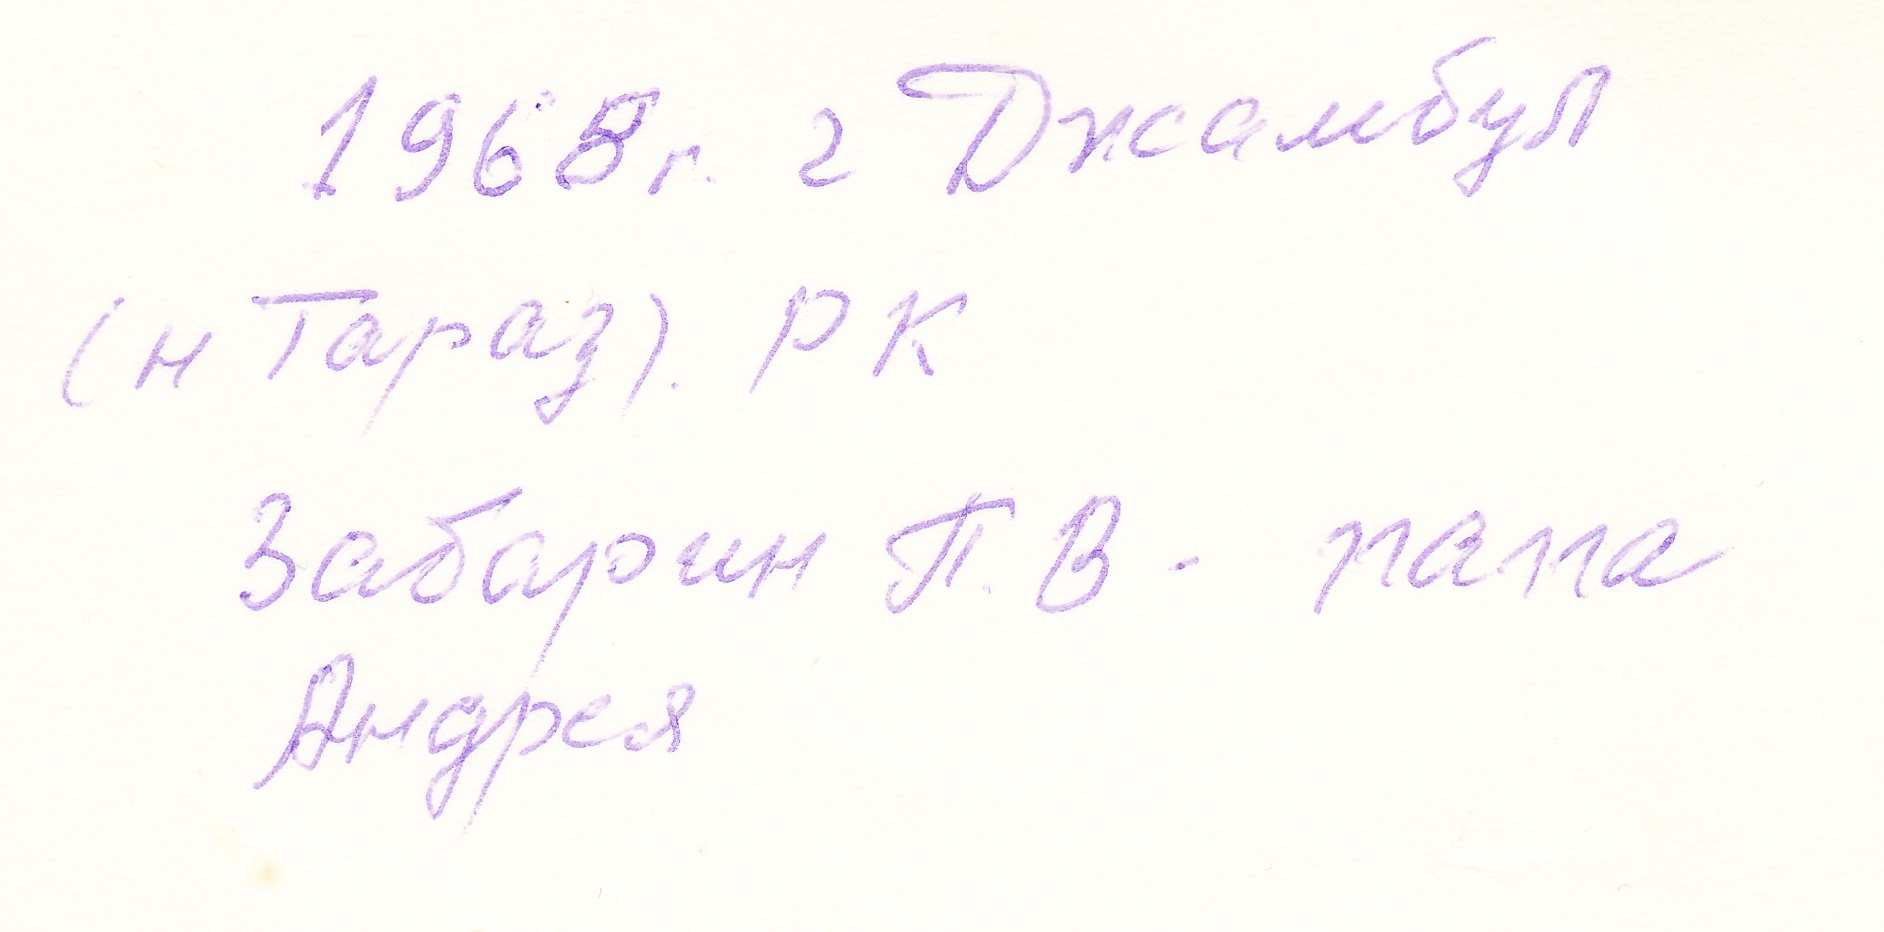 1968г. г Джамбул
(н Тараз). РК
Забарин П. В - папа
Андрея